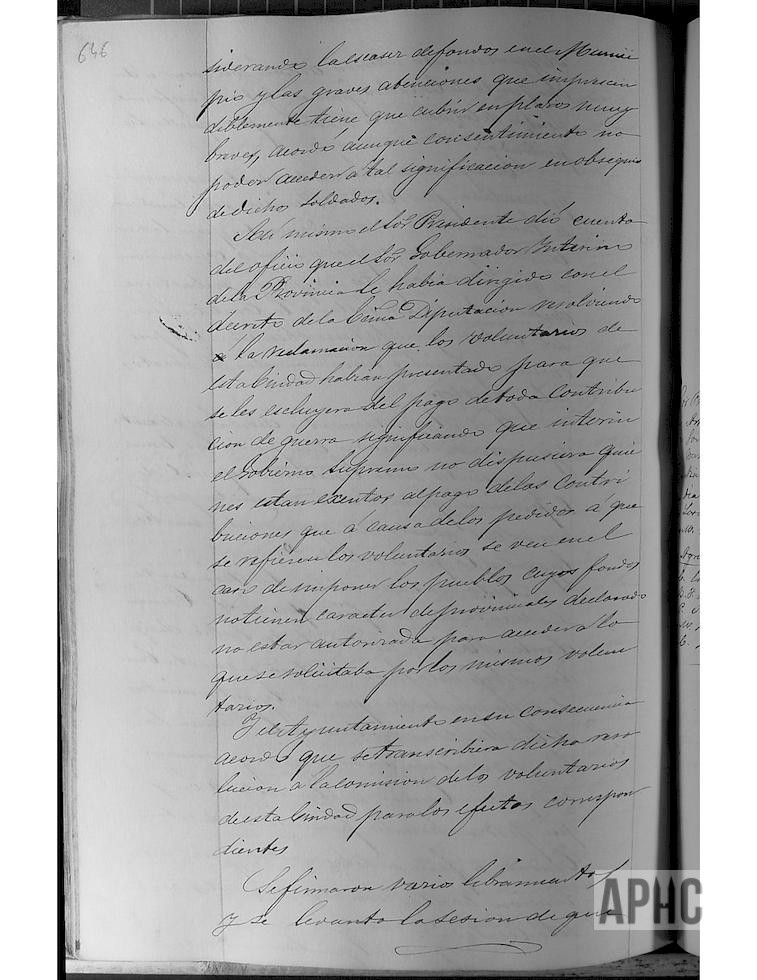 646
siderando la escasez de fondos en el Munici
pio y las graves atenciones que imprescin
diblemente tiene que cubrir en plazos muy
breves, acordó aunque con sentimiento no
poder acceder a tal significacion en obsequio
de dichos soldados.
Asi mismo el Sor. Presidente dió cuenta
del oficio que el Sor. Gobernador Interino
de la Provincia le habia dirigido con el
decreto de la Exma Diputacion resolviendo
la reclamacion que los voluntarios de
esta Ciudad habian presentado para que
se les escluyera del pago de toda contribu
cion de guerra significando que interin
el Gobierno Supremo no dispusiera quie
nes estan exentos al pago de las Contri
buciones que a causa de los pedidos á que
se refieren los voluntarios se ven en el
caso de imponer los pueblos cuyos fondos
no tienen caracter de provinciales declarando
no estar autorizada para acceder a lo
que se solicitaba por los mismos volun
tarios.
Y el Ayuntamiento en su consecuencia
acordó que se transcribiera dicha reso
lucion a la comision de los voluntarios
de esta Ciudad para los efectos correspon
dientes
Se firmaron varios libramientos
y se levanto la sesion de que
APHC